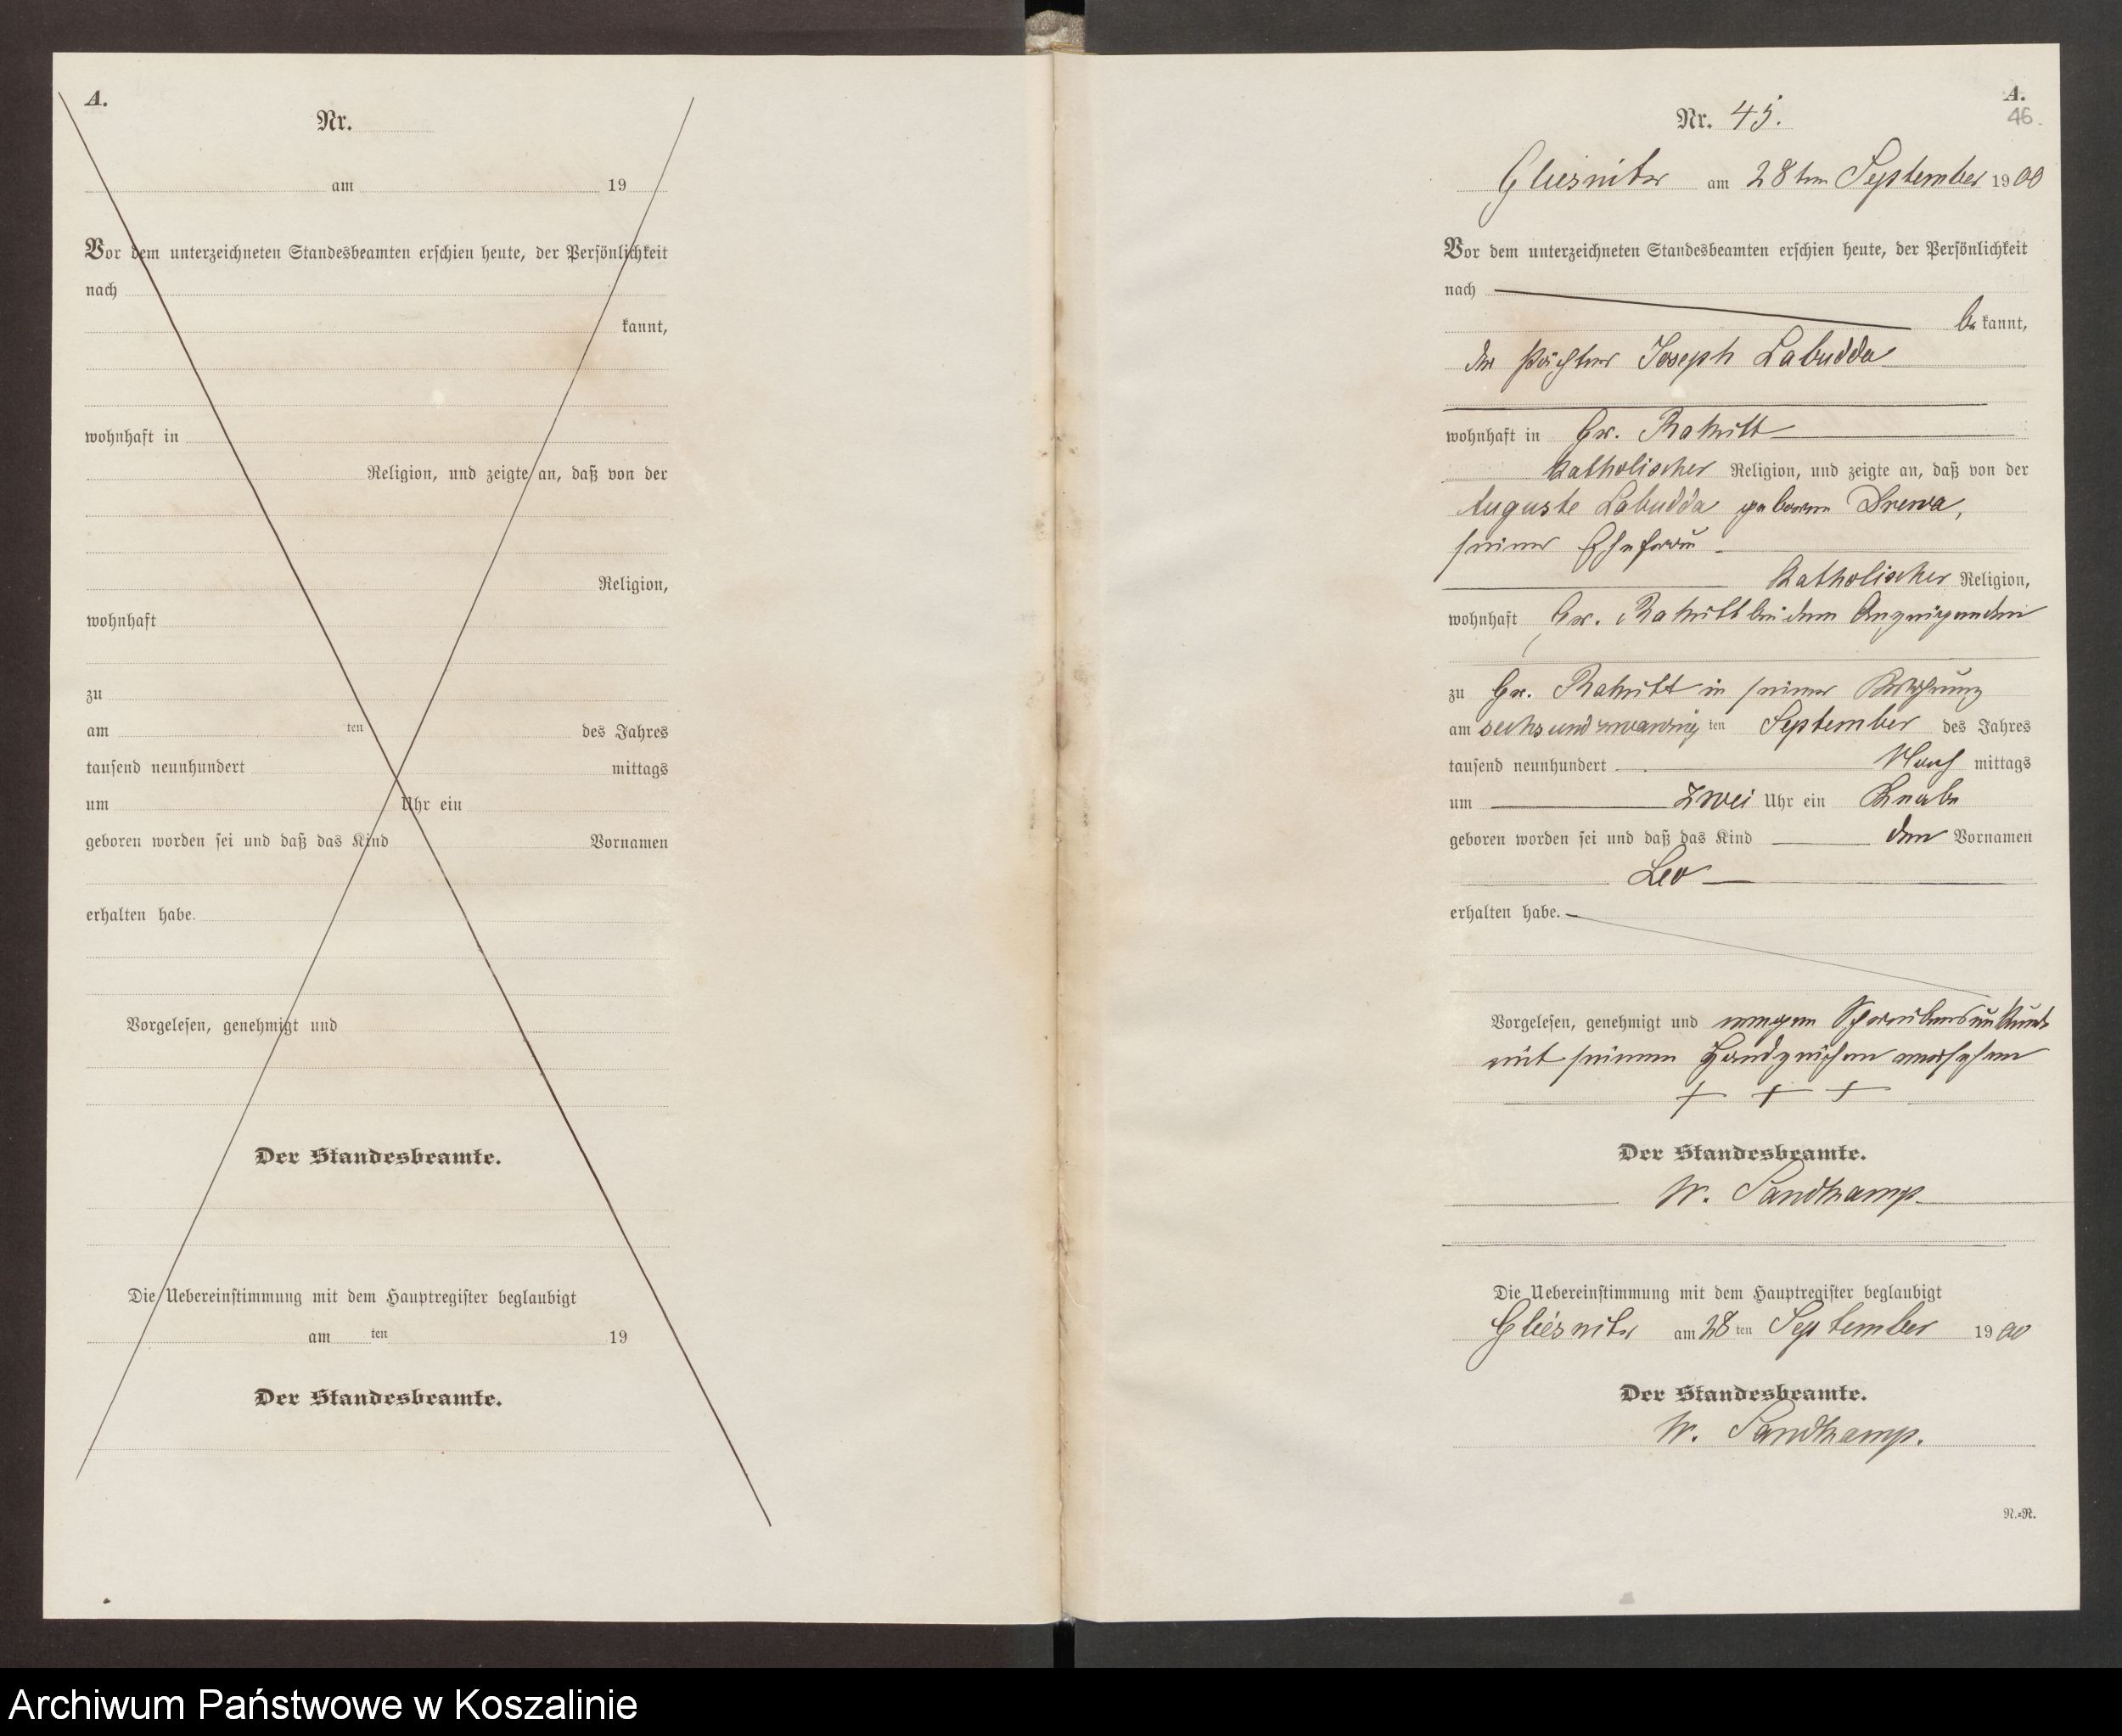 A.
Nr.
am 19
Vor dem unterzeichneten Standesbeamten erschien heute, der Persönlichkeit
nach
kannt,
wohnhaft in
Religion, und zeigte an, daß von der
Religion,
wohnhaft
zu
am ten des Jahres
tausend neunhundert mittags
um Uhr ein
geboren worden sei und daß das Kind Vornamen
erhalten habe.
Vorgelesen, genehmigt und
Der Standesbeamte.
Die Uebereinstimmung mit dem Hauptregister beglaubigt
am ten 19
Der Standesbeamte.
A.
46.
Nr. 45.
Gliesnitz am 28ten September 1900
Vor dem unterzeichneten Standesbeamten erschien heute, der Persönlichkeit
nach
be kannt,
der Pächter Joseph Labudda
wohnhaft in Gr. Rakitt
katholischer Religion, und zeigte an, daß von der
Auguste Labudda geborene Drewa,
seiner Ehefrau
katholischer Religion,
wohnhaft Gr. Rakitt bei dem Anzeigenden
zu Gr. Rakitt in seiner Wohnung
am sechsundzwanzig ten September des Jahres
tausend neunhundert Nach mittags
um zwei Uhr ein Knabe
geboren worden sei und daß das Kind den Vornamen
Leo
erhalten habe.
Vorgelesen, genehmigt und wegen Schreibensunkunde
mit seinem Handzeichen versehen
+ + +
Der Standesbeamte.
W. Sandkamp.
Die Uebereinstimmung mit dem Hauptregister beglaubigt
Gliesnitz am 28 ten September 1900
Der Standesbeamte.
W. Sandkamp.
N.=R.
Archiwum Państwowe w Koszalinie